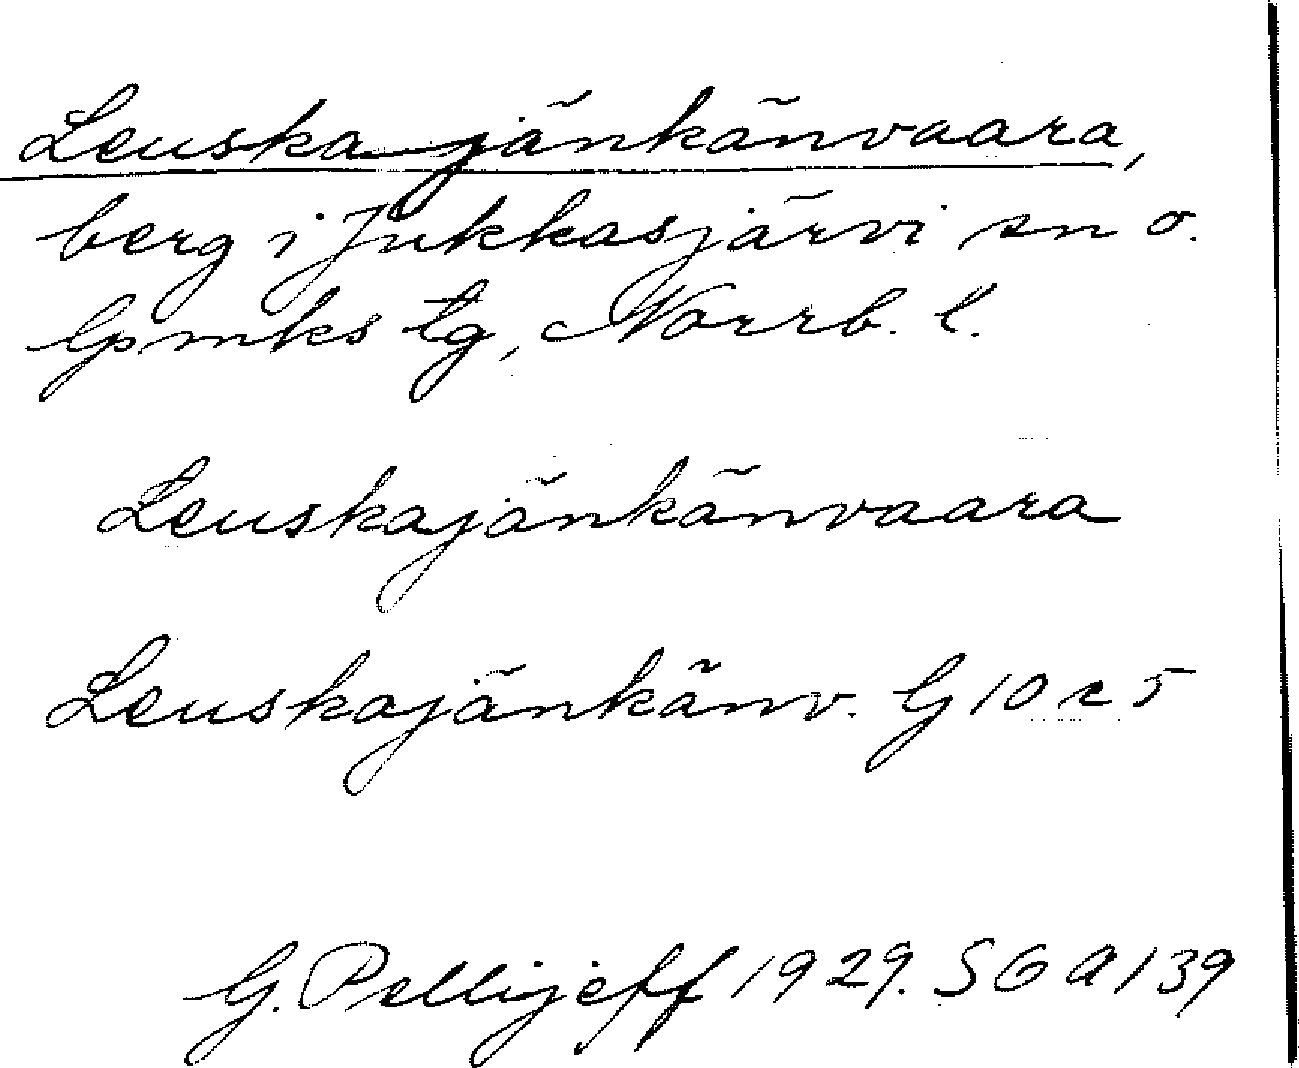 Leuskajänkänvaara,
berg i Jukkasjärvi sn o.
lpmks tg, Norrb. l.
Leuskajänkänvaara
Leuskajänkänv. G 10 c 5
G. Pellijeff 1929. SGA 139